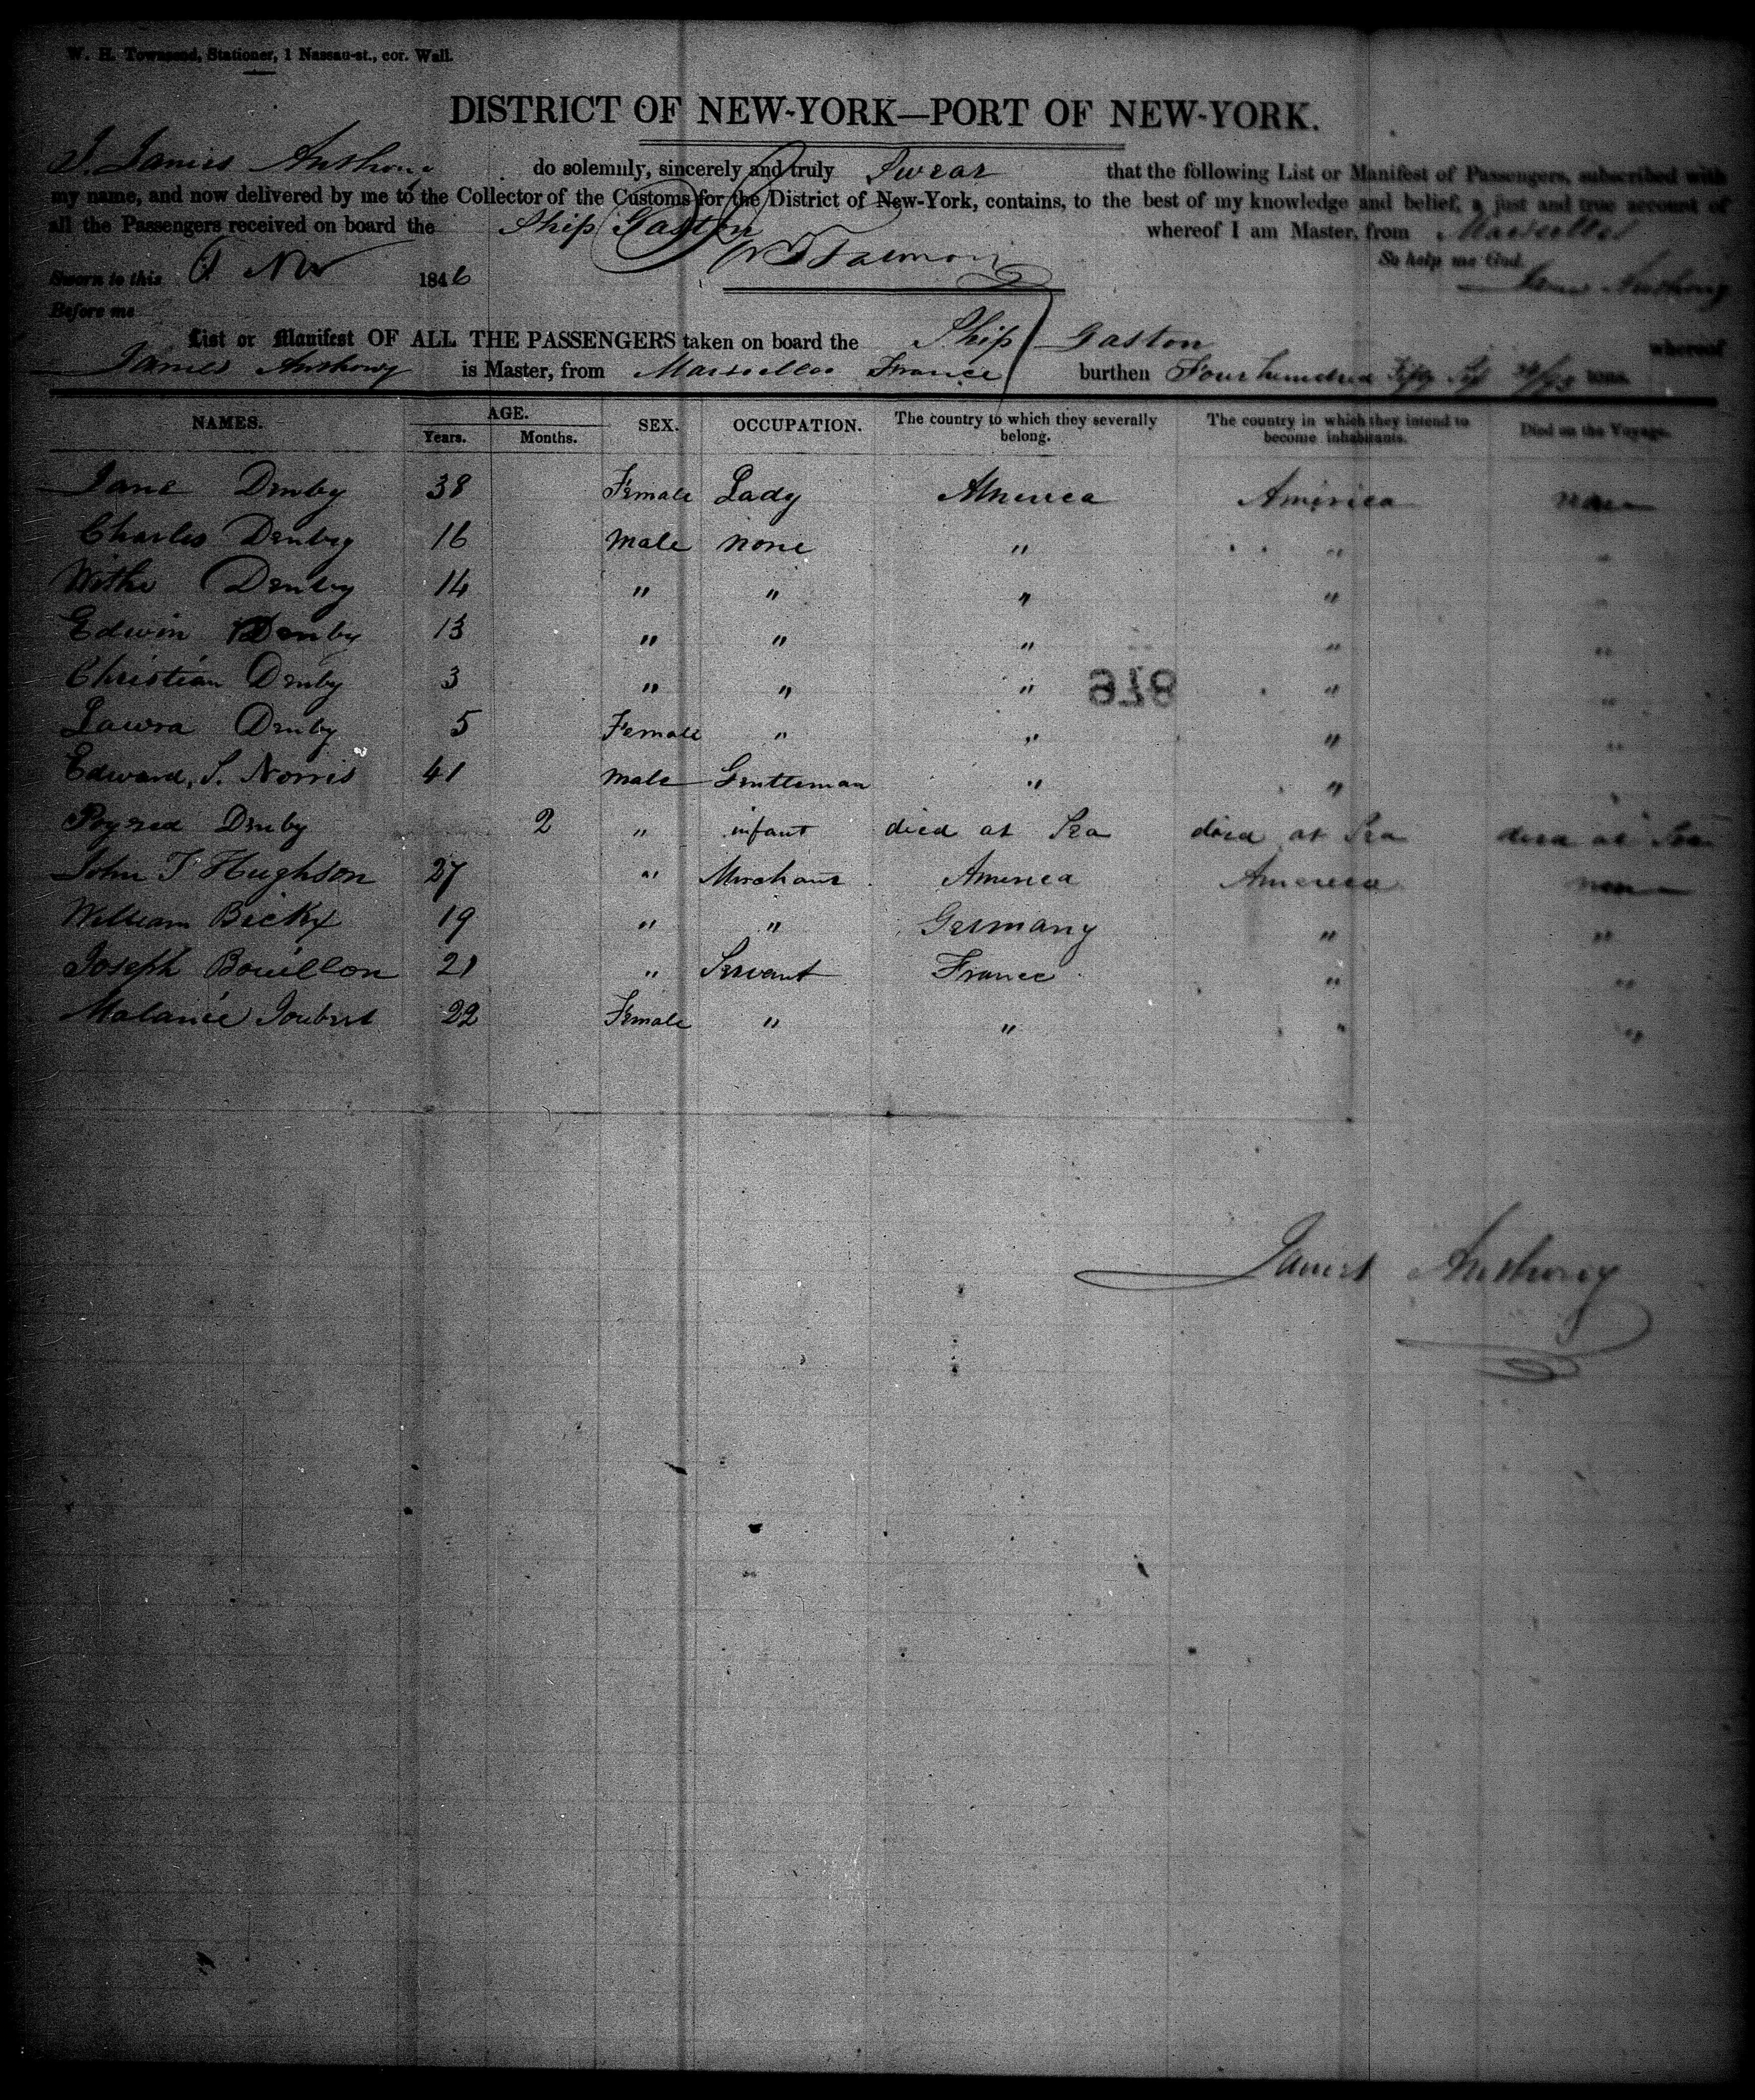 W. H. Townsend, Stationer, 1 Nassau-st., cor. Wall.
DISTRICT OF NEW-YORK—PORT OF NEW-YORK.
I, James Anthony do solemnly, sincerely and truly Swear that the following List or Manifest of Passengers, subscribed with
my name, and now delivered by me to the Collector of the Customs for the District of New-York, contains, to the best of my knowledge and belief, a just and true account of
all the Passengers received on board the Ship Gaston whereof I am Master, from Marseilles
So help me God.
Sworn to this Nov 1846 James Anthony
Before me
List or Manifest OF ALL THE PASSENGERS taken on board the Ship Gaston whereof
James Anthony is Master, from Marseilles France burthen Four hundred Fifty Six tons.
NAMES. AGE. SEX. OCCUPATION. The country to which they severally belong. The country in which they intend to become inhabitants. Died on the Voyage.
Years. Months.
Jane Denby 38 Female Lady America America none
Charles Denby 16 male none " " "
Denby 14 " " " " "
Edwin Denby 13 " " " " "
Christian Denby 3 " " " " "
876
Lawra Denby 5 Female " " " "
Edward, S. Norris 41 male Gentleman " " "
Denby 2 " infant died at Sea died at Sea died at Sea
John T Hughson 27 " Merchant America America none
William 19 " " Germany " "
Joseph Bouillon 21 " Servant France " "
Malanie Joubert 22 Female " " " "
James Anthony